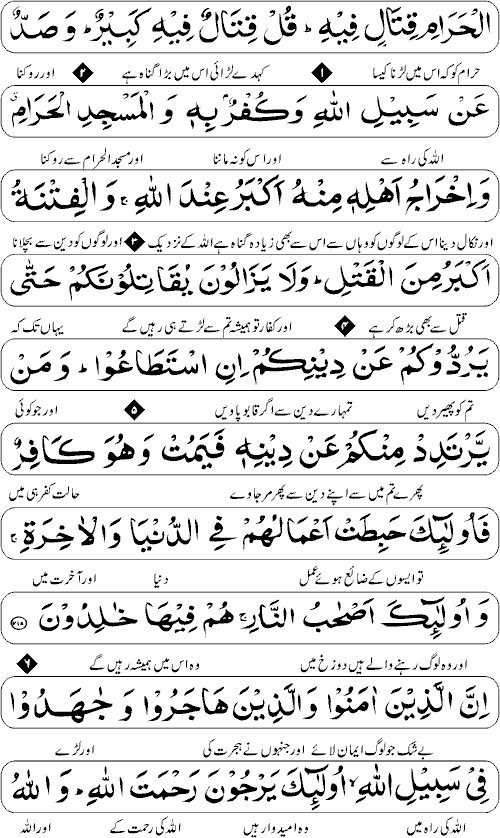 الْحَرَامِ قِتَالٍ فِيْهِ ؕ قُلْ قِتَالٌ فِيْهِ كَبِيْرٌ ؕ وَ صَدٌّ
حرام کو کہ اس میں لڑنا کیسا ۱ کہدے لڑائی اس میں بڑا گناہ ہے ۲ اور روکنا
عَنْ سَبِيْلِ اللّٰهِ وَ كُفْرٌۢ بِهٖ وَ الْمَسْجِدِ الْحَرَامِ ۗ
اللہ کی راہ سے اور اس کو نہ ماننا اور مسجد الحرام سے روکنا
وَ اِخْرَاجُ اَهْلِهٖ مِنْهُ اَكْبَرُ عِنْدَ اللّٰهِ ۚ وَ الْفِتْنَةُ
اور نکال دینا اس کے لوگوں کو وہاں سے اس سے بھی زیادہ گناہ ہے اللہ کے نزدیک ۳ اور لوگوں کو دین سے بچلانا
اَكْبَرُ مِنَ الْقَتْلِ ؕ وَلَا يَزَالُوْنَ يُقَاتِلُوْنَكُمْ حَتّٰى
قتل سے بھی بڑھ کر ہے ۴ اور کفار تو ہمیشہ تم سے لڑتے ہی رہیں گے یہاں تک کہ
يَرُدُّوْكُمْ عَنْ دِيْنِكُمْ اِنِ اسْتَطَاعُوْا ؕ وَ مَنْ
تم کو پھیر دیں تمہارے دین سے اگر قابو پاویں ۵ اور جو کوئی
يَّرْتَدِدْ مِنْكُمْ عَنْ دِيْنِهٖ فَيَمُتْ وَ هُوَ كَافِرٌ
پھرے تم میں سے اپنے دین سے پھر مر جاوے حالت کفر ہی میں
فَاُولٰٓئِكَ حَبِطَتْ اَعْمَالُهُمْ فِي الدُّنْيَا وَ الْاٰخِرَةِ ۚ
تو ایسوں کے ضائع ہوئے عمل دنیا اور آخرت میں
وَ اُولٰٓئِكَ اَصْحٰبُ النَّارِ ۚ هُمْ فِيْهَا خٰلِدُوْنَ ۲۱۷
اور وہ لوگ رہنے والے ہیں دوزخ میں وہ اس میں ہمیشہ رہیں گے ۶
اِنَّ الَّذِيْنَ اٰمَنُوْا وَ الَّذِيْنَ هَاجَرُوْا وَ جٰهَدُوْا
بے شک جو لوگ ایمان لائے اور جنہوں نے ہجرت کی اور لڑے
فِيْ سَبِيْلِ اللّٰهِ ۙ اُولٰٓئِكَ يَرْجُوْنَ رَحْمَتَ اللّٰهِ ؕ وَ اللّٰهُ
اللہ کی راہ میں وہ امیدوار ہیں اللہ کی رحمت کے اور اللہ